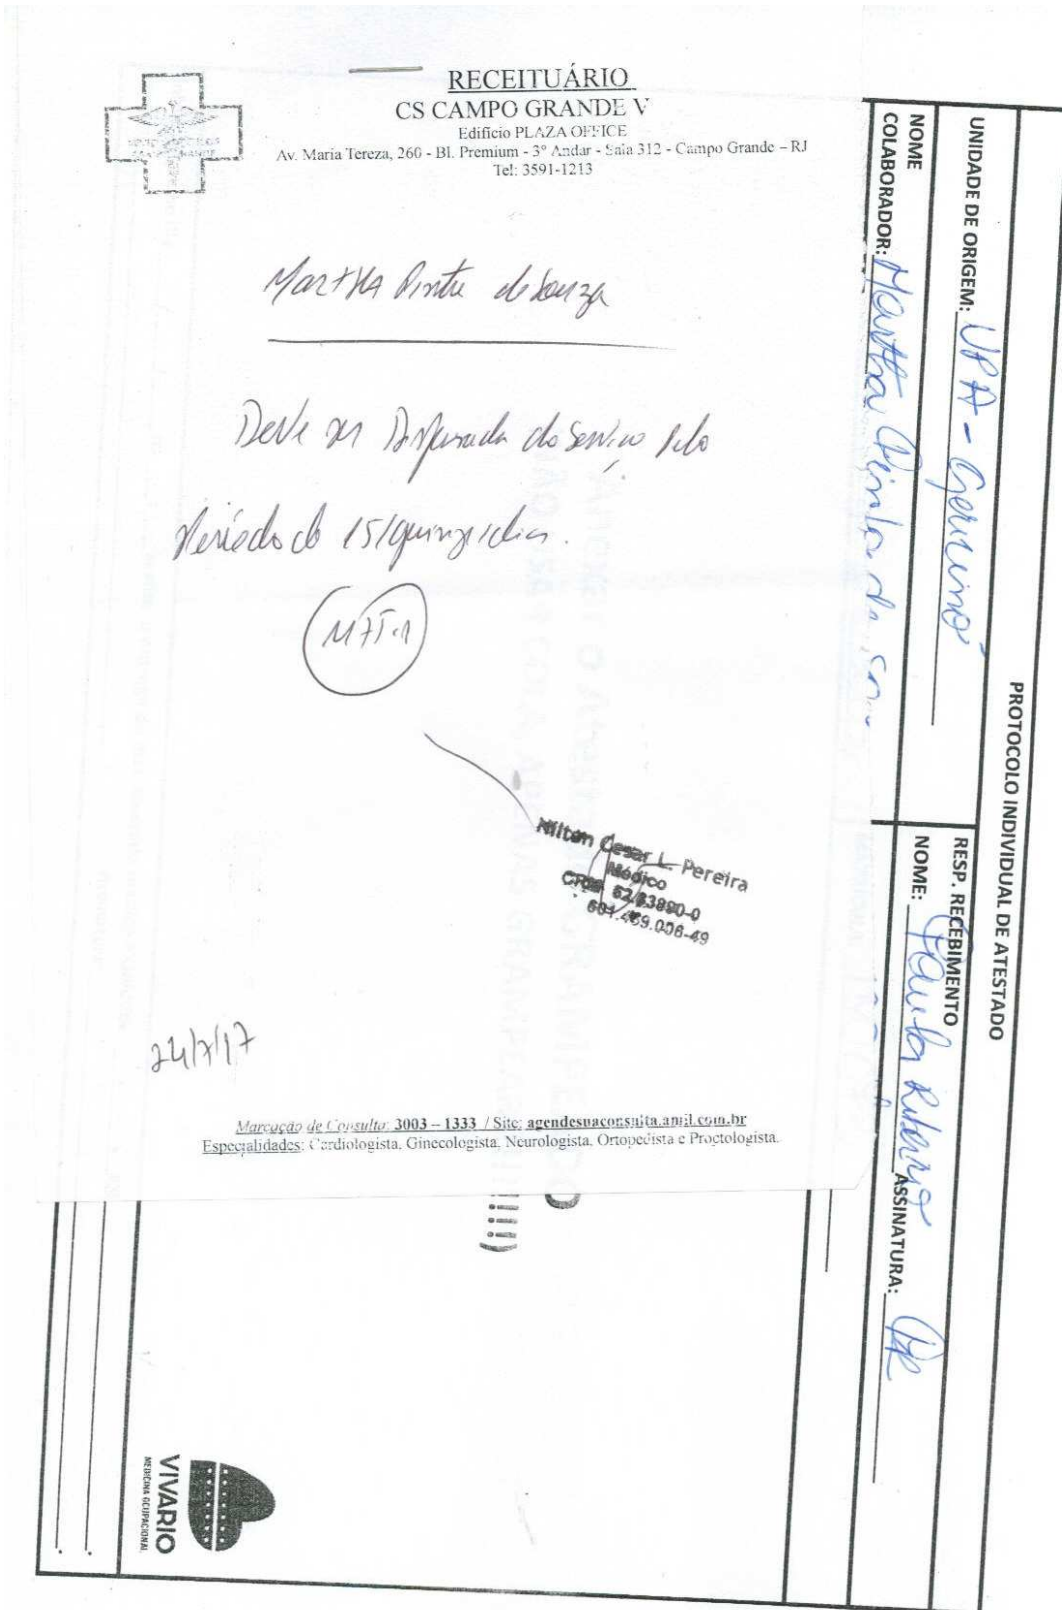 RECEITUÁRIO
CS CAMPO GRANDE V
Edifício PLAZA OFFICE
Av. Maria Tereza, 260 - Bl. Premium - 3º Andar - Sala 312 - Campo Grande – RJ
Tel: 3591-1213
Martha de Souza
Deve ser do Serviço Pelo
Período de 15/quinze/dias.
Nilton Cesar L. Pereira
Médico
24/7/17
Marcação de Consulta: 3003 – 1333 / Site: agendesuaconsulta.amil.com.br
Especialidades: Cardiologista, Ginecologista, Neurologista, Ortopedista e Proctologista.
PROTOCOLO INDIVIDUAL DE ATESTADO
UNIDADE DE ORIGEM: UPA - Gericinó
RESP. RECEBIMENTO
NOME
COLABORADOR: Martha
NOME: Ribeiro ASSINATURA:
VIVARIO
MEDICINA OCUPACIONAL